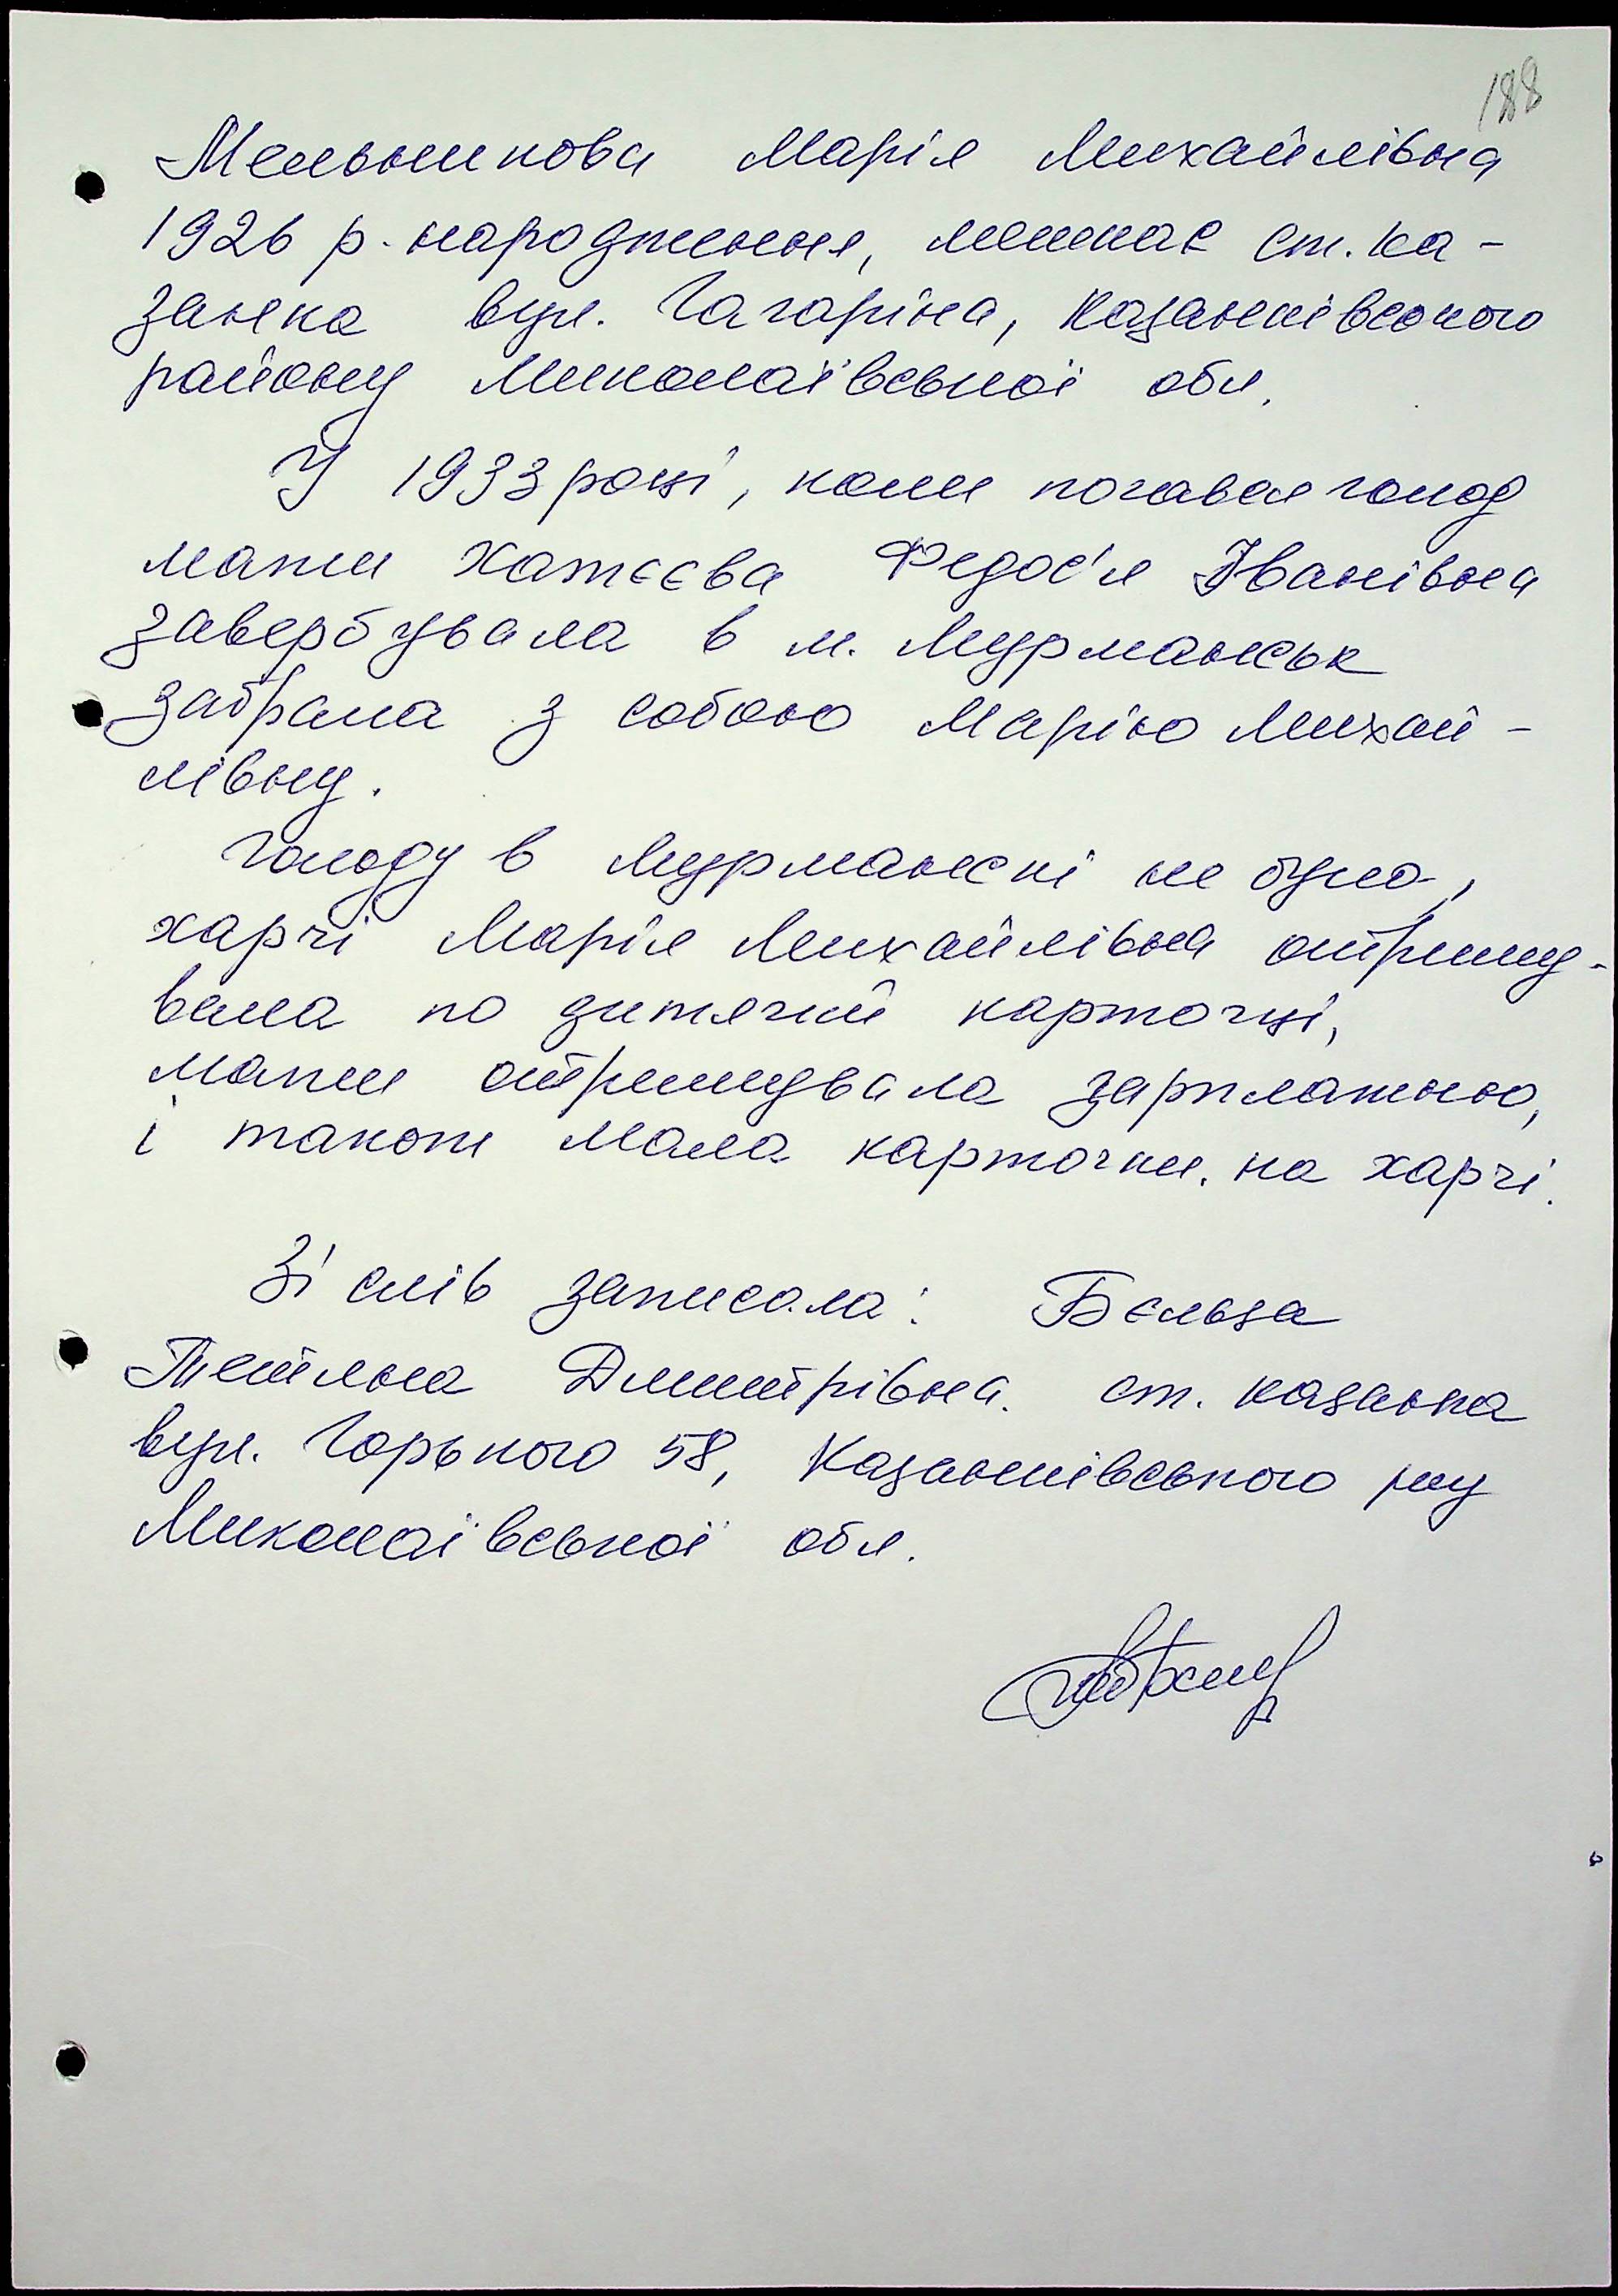 188
Меньшикова Марія Михайлівна
1926 р. народження, мешкає ст. Ка-
занка вул. Гагаріна, Казанківського
району Миколаївської обл.
У 1933 році, коли почався голод
мати Хатєєва Федос'я Іванівна
завербувала в м. Мурманськ
забрала з собою Марію Михай-
лівну.
Голоду в Мурманскі не було,
харчі Марія Михайлівна отриму-
вала по дитячій карточці,
мати отримувала зарплатню,
і також мала карточки на харчі.
Зі слів записала: Бєльза
Тетяна Дмитрівна. ст. Казанка
вул. Горького 58, Казанківського р-ну
Миколаївської обл.